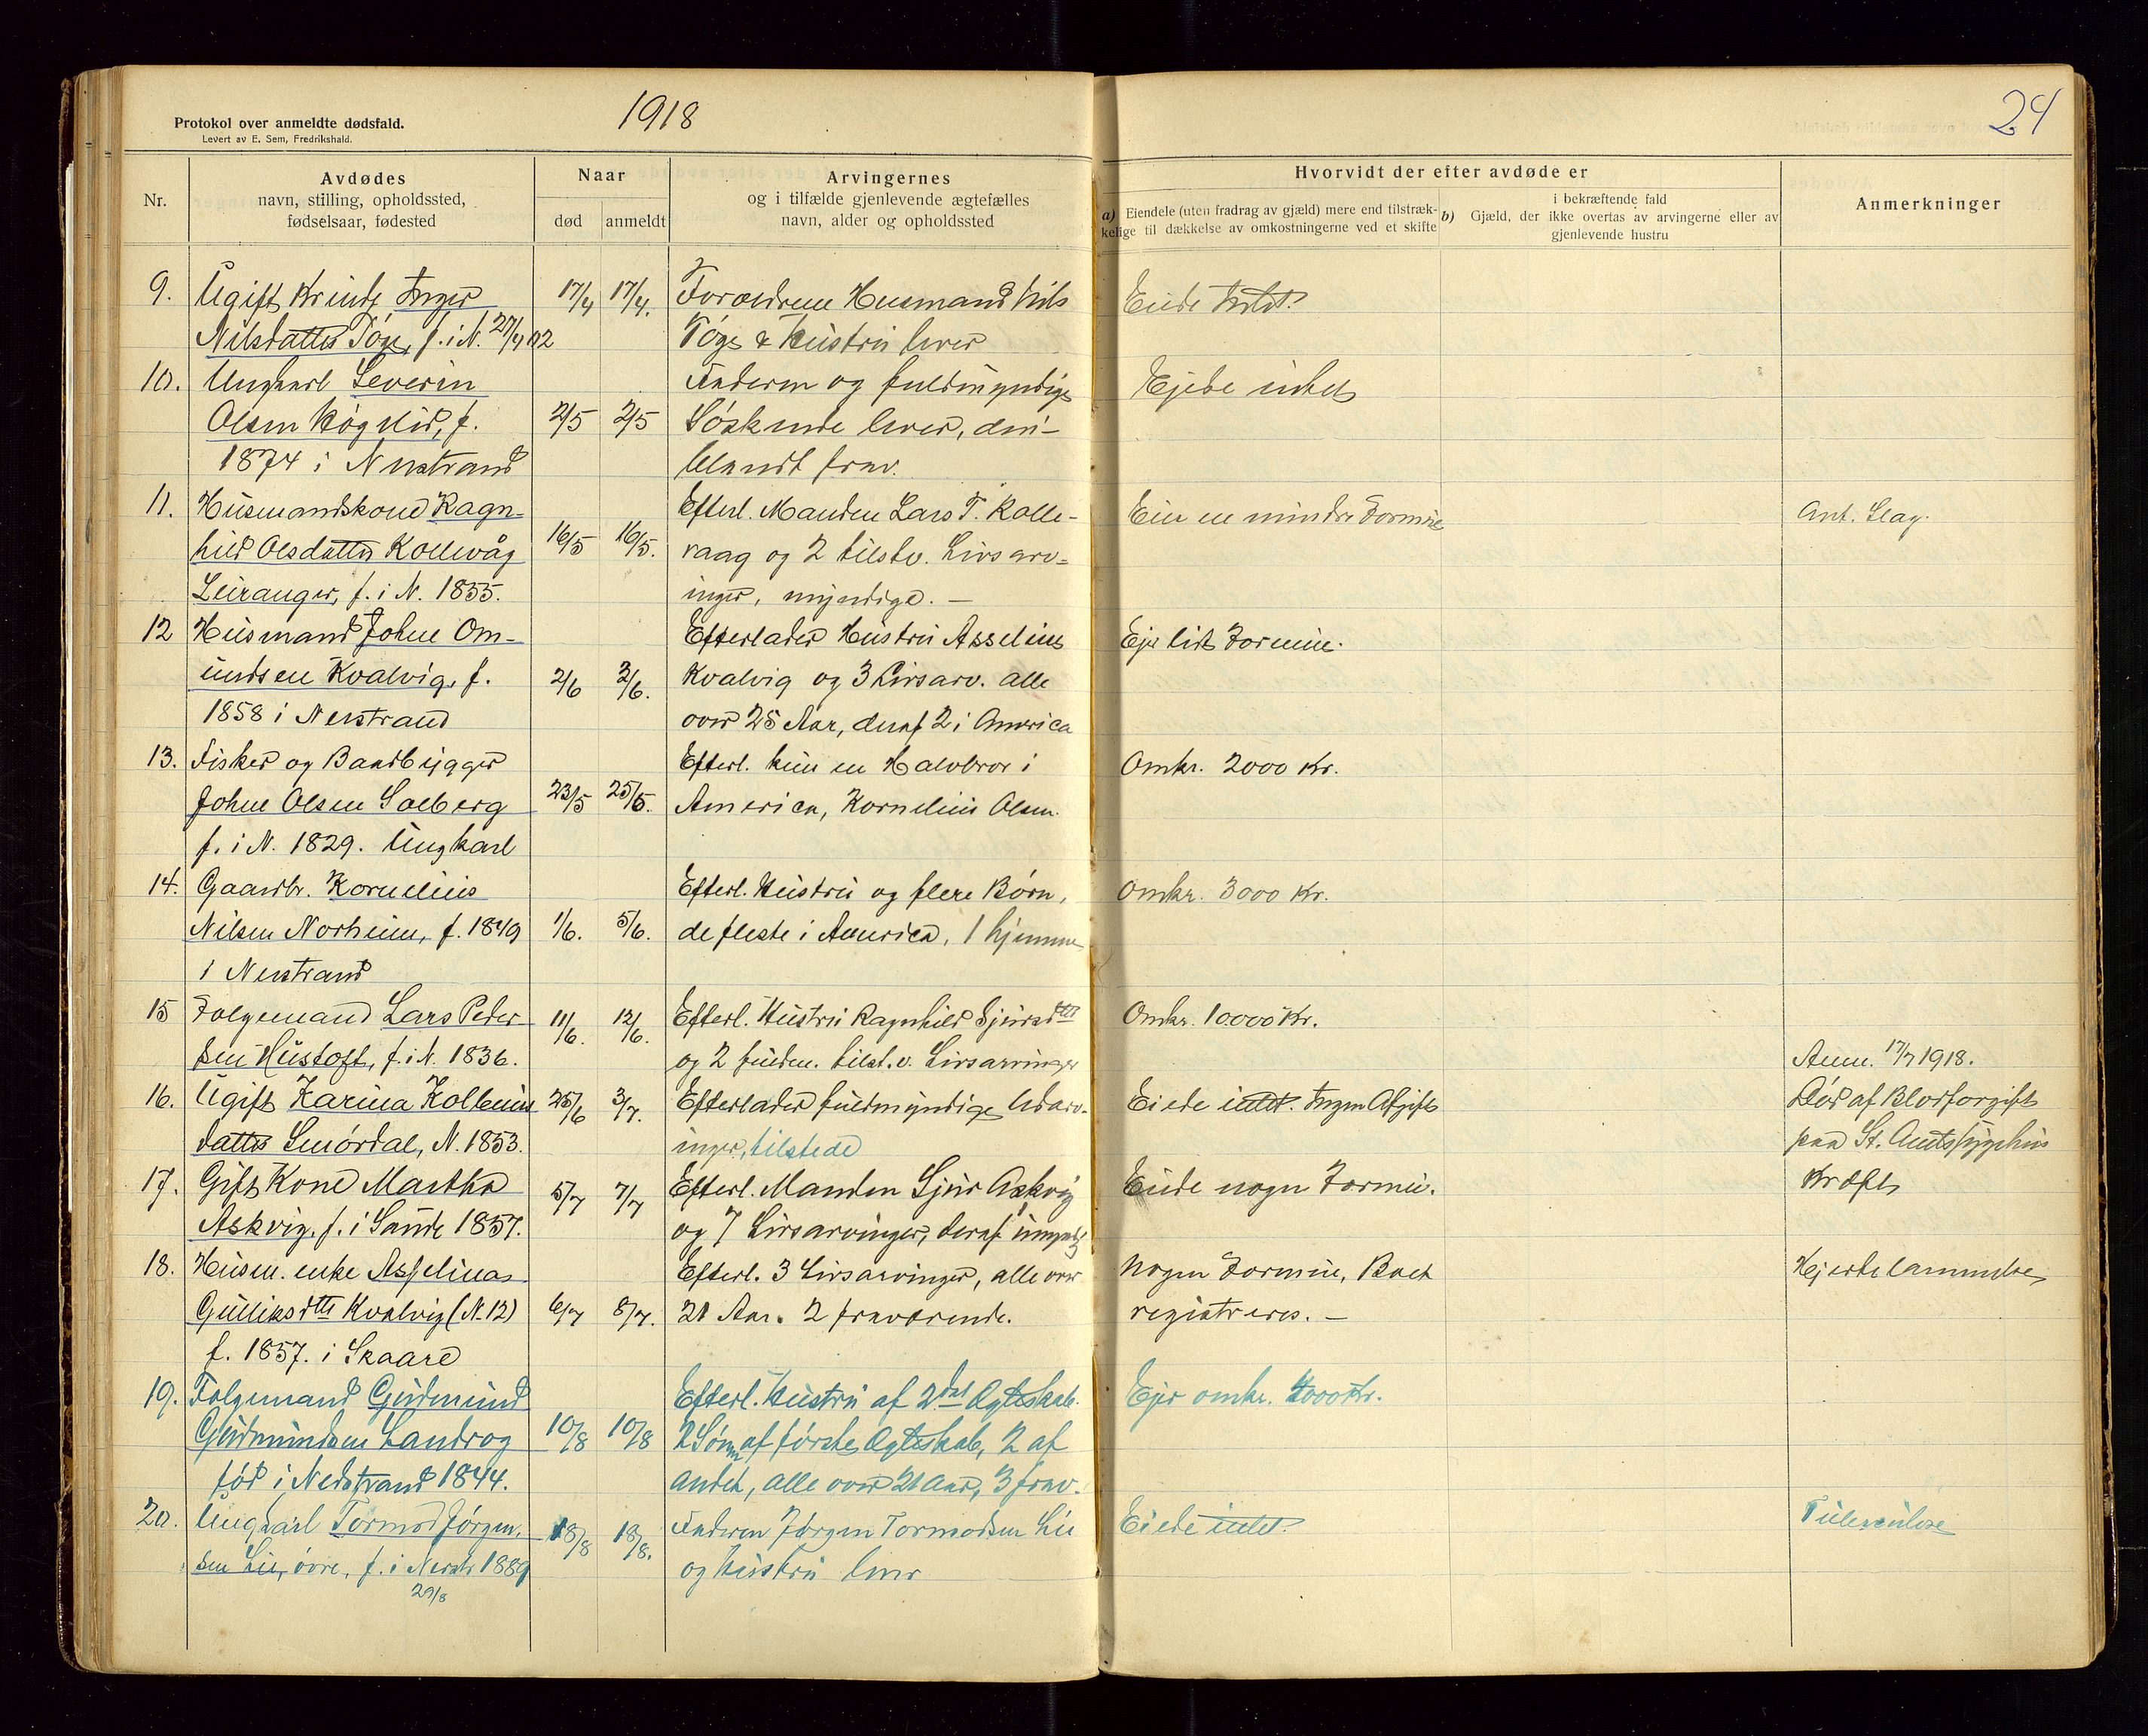 Protokol over anmeldte dødsfald.
Levert av E. Sem, Fredrikshald.
1918
24
Nr.
Avdødes
navn, stilling, opholdssted,
fødselsaar, fødested
Naar
død
anmeldt
Arvingernes
og i tilfælde gjenlevende ægtefælles
navn, alder og opholdssted
Hvorvidt der efter avdøde er
a) Eiendele (uten fradrag av gjæld) mere end tilstræk-
kelige til dækkelse av omkostningerne ved et skifte
i bekræftende fald
b) Gjæld, der ikke overtas av arvingerne eller av
gjenlevende hustru
Anmerkninger
9. Ugift Kvinde Inger 17/4 17/4. Forældrene Husmand Nils Eiede Intet.
Nilsdatter f. i N. 27/4 02 & Hustru lever
10. Ungkarl Severin Faderen og fuldmyndige Ejede intet
Olsen f. 2/5 2/5 Søskende lever, deri-
1874 i Nerstrand blandt frav.
11. Husmandskone Ragn- Efterl. Manden Lars T. Kolle- Eier en mindre Formue Ant. Slag.
hild Olsdatter Kollevåg 16/5 16/5. vaag og 2 tilstv. Livsarv-
Leiranger, f. i N. 1855. inger, myndige. —
12 Husmand Johne Om- Efterlader Hustru Asseline Ejer lidt Formue.
undsen Kvalvig, f. 2/6 3/6. Kvalvig og 3 Livsarv. alle
1858 i Nerstrand over 25 Aar, deraf 2 i America
13. Fisker og Baadbygger Efterl. kun en Halvbror i Omkr. 2000 Kr.
Johne Olsen Solberg 23/5 25/5. America, Kornelius Olsen.
f. i N. 1829. Ungkarl
14. Gaardbr. Kornelius Efterl. Hustru og flere Børn, Omkr. 3000 Kr.
Nilsen Norheim, f. 1849 1/6. 5/6. de fleste i America, 1 hjemme
i Nerstrand
15 Folgemand Lars Peder- 11/6. 12/6. Efterl. Hustru Ragnhild Sjursdtr Omkr. 10000 Kr.
sen Hustoft, f. i N. 1836. og 2 tilst.v. Livsarvinger Anm. 17/7 1918.
16. Ugift Karina Kolbeins 25/6 3/7. Efterlader fuldmyndige Udarv- Eiede intet. Ingen Afgift Død af Blodforgift
datter Smørdal, N. 1853. inger, tilstede paa St. Amtssygehus
17. Gift Kone Martha 5/7 7/7 Efterl. Manden Sjur Askvig Eiede nogen Formue. Kræft
Askvig, f. i Sande 1857. og 7 Livsarvinger, deraf 1 umynd.
18. Husm. enke Asseline Efterl. 3 Livsarvinger, alle over Nogen Formue, Boet Hjertelammelse
Gulliksdtr Kvalvig (N. 12) 6/7 8/7. 21 Aar. 2 fraværende. registreres. —
f. 1857. i Skaare
19. Folgemand Gudmund Efterl. Hustru af 2det Ægteskab. Ejer omkr. 2000 Kr.
Gudmundsen Landrog 10/8 10/8 2 Sønner af første Ægteskab, 2 af
fød i Nedstrand 1844. andet, alle over 21 Aar, 3 frav.
20. Ungkarl Tormod Jørgen- 18/8 18/8. Faderen Jørgen Tormodsen Lie Eiede intet. Tuberkulose
sen Lie, øvre, f. i Nerstr. 1889 og Hustru lever
29/8